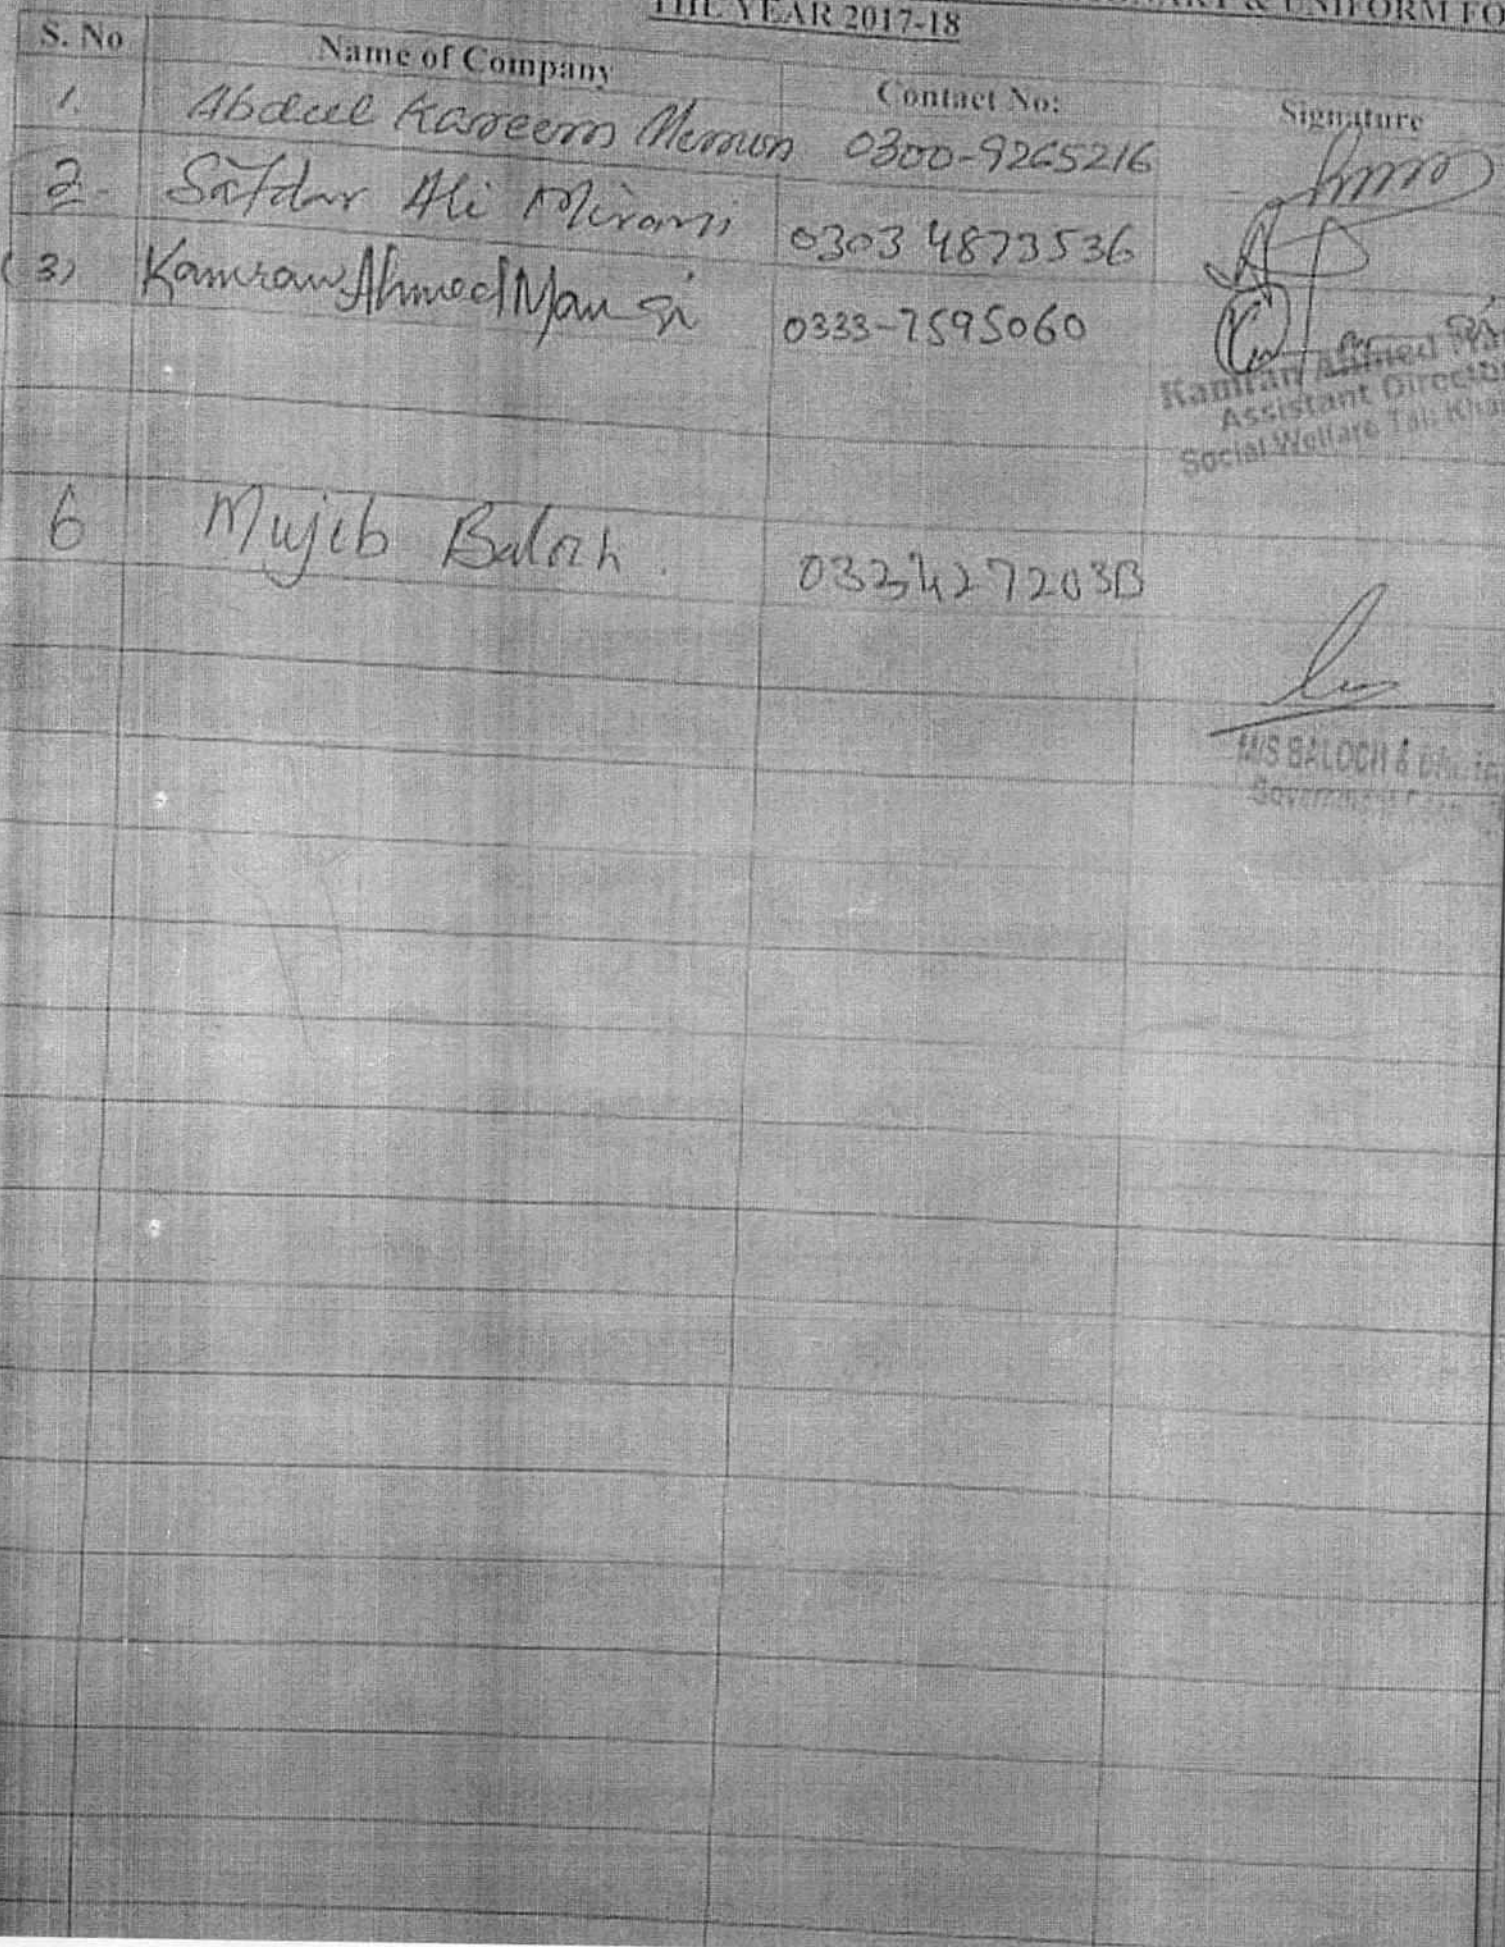 & UNIFORM FO
THE YEAR 2017-18
S. No Name of Company Contact No: Signature
1. Abdul Kareem Memon 0300-9265216
2- Safdar Ali Mirani 0303 4873536
(3) Kamran Ahmed Mangi 0333-7595060
Kamran Ahmed
Assistant Director
Social Welfare
6 Mujib Baloch.
M/S BALOCH &
Government